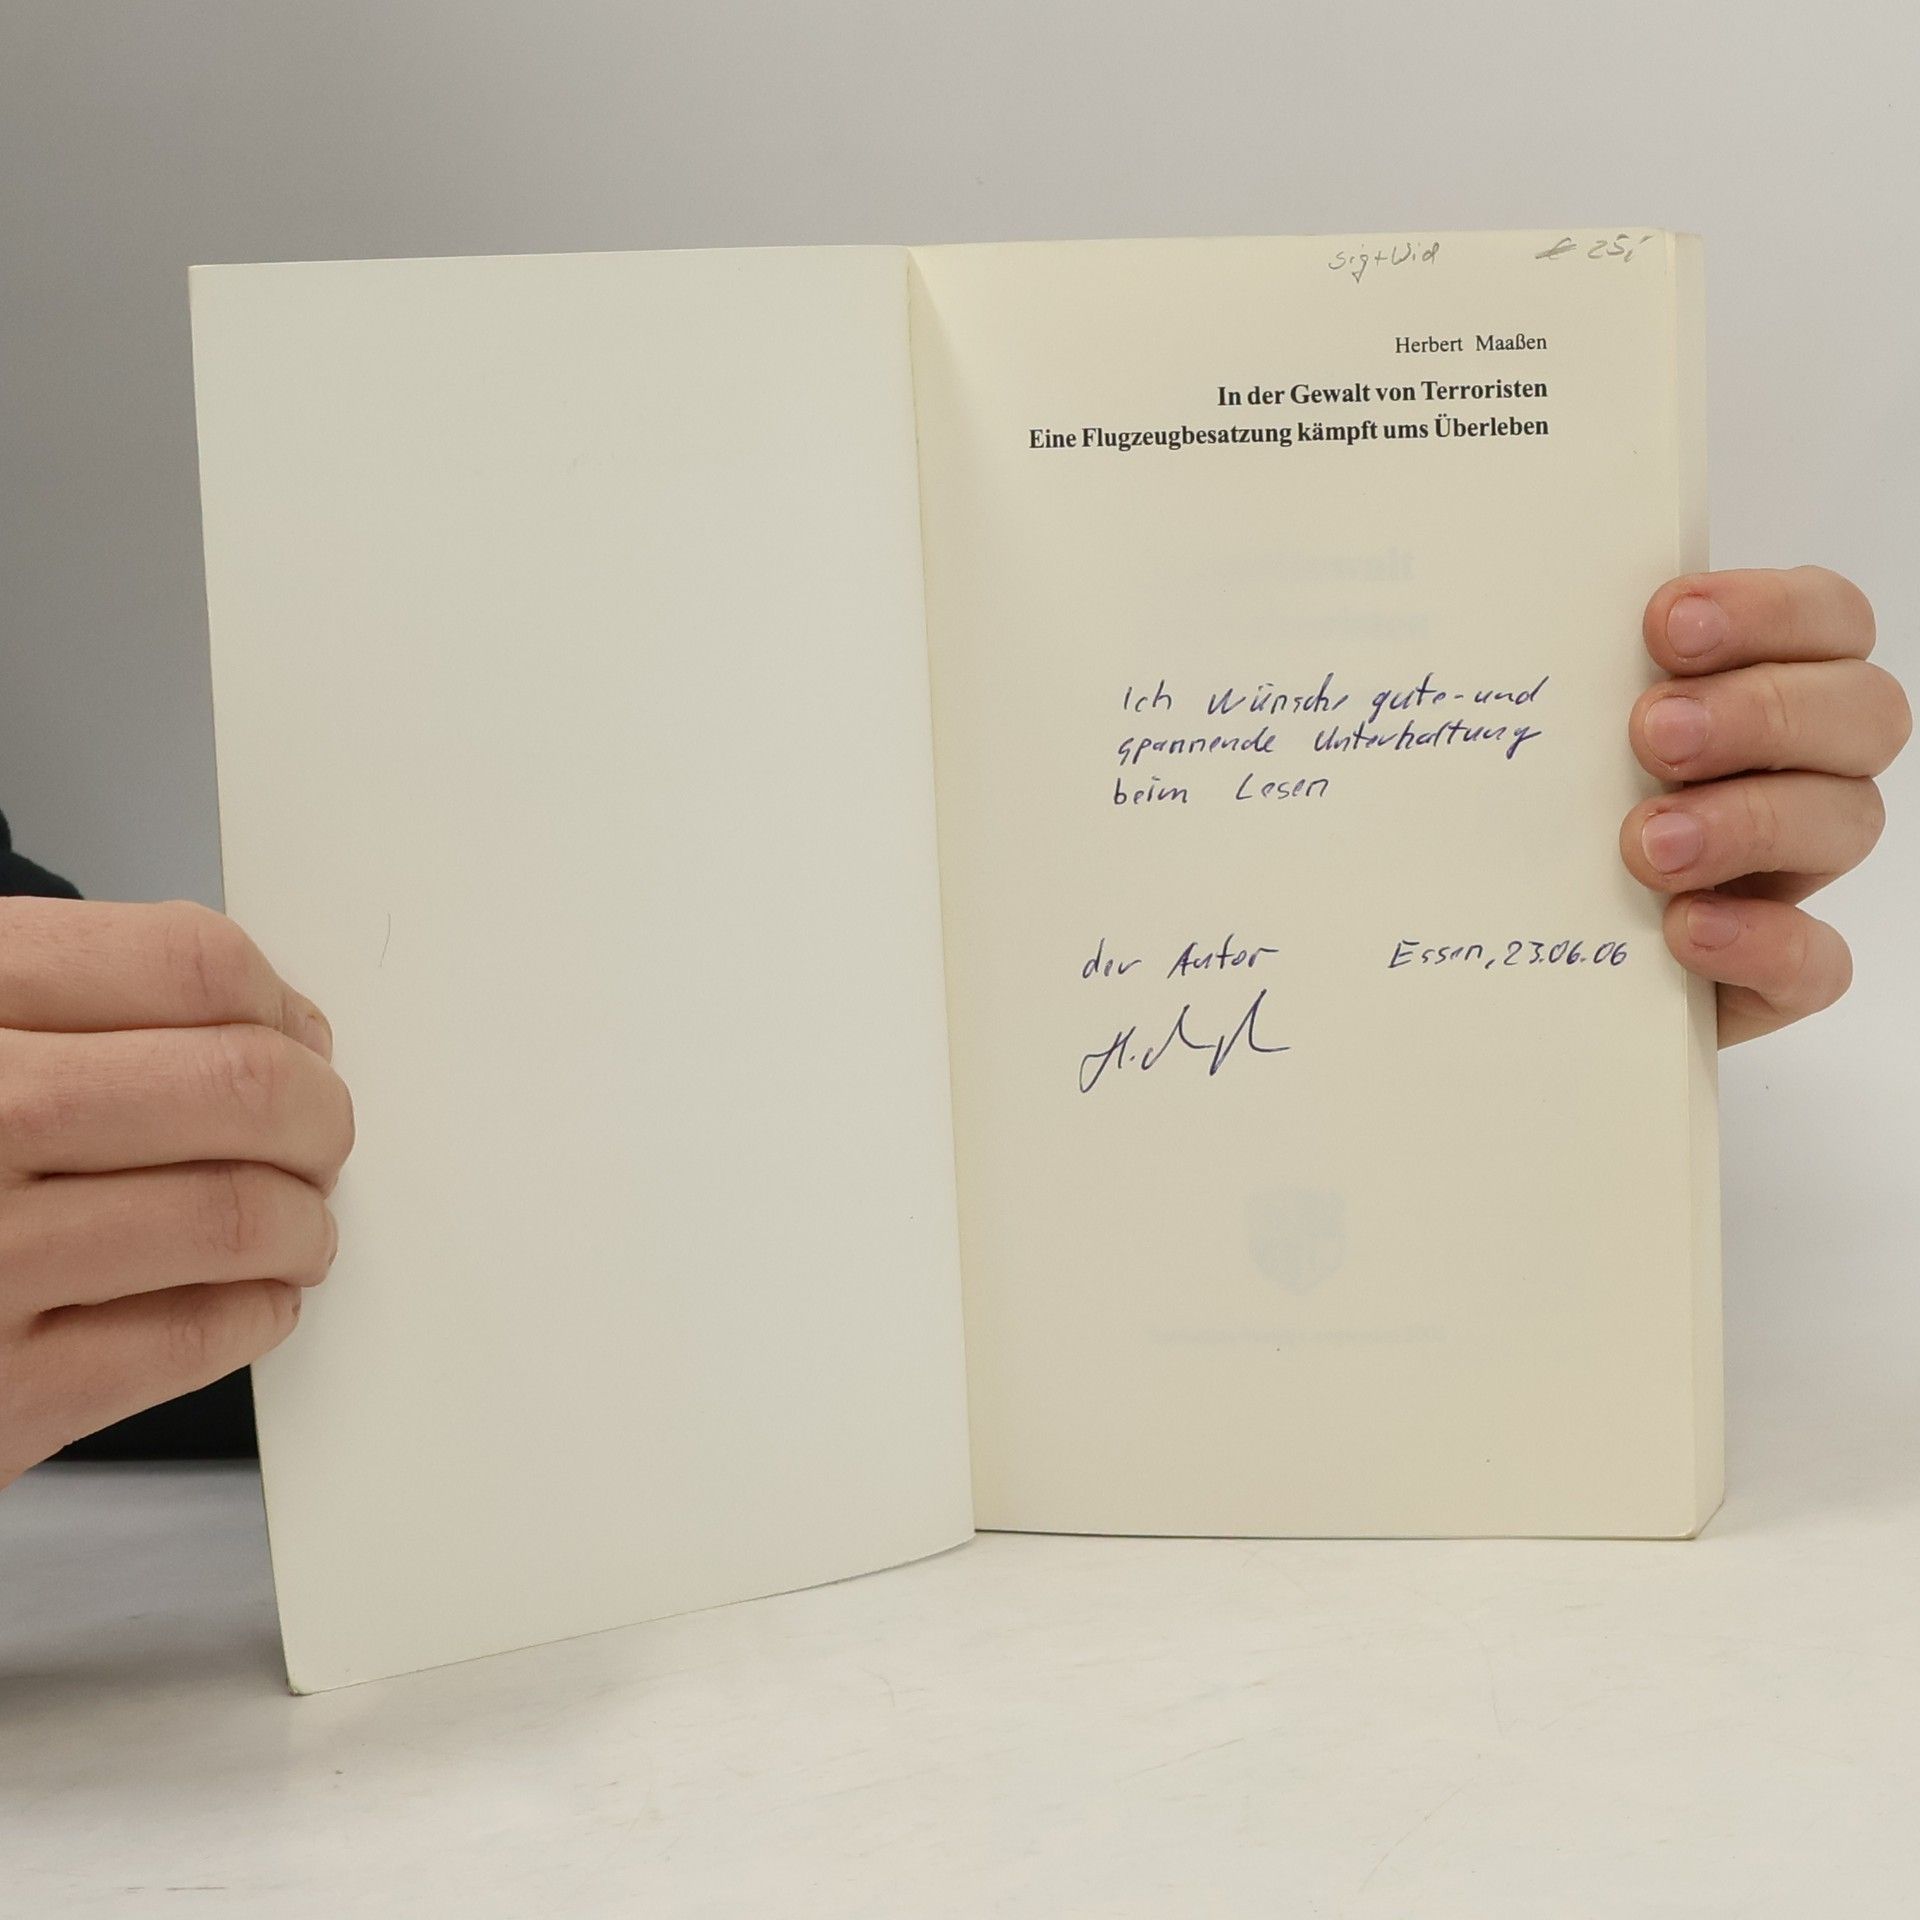 sig+Wid € 25,-
Herbert Maaßen
In der Gewalt von Terroristen
Eine Flugzeugbesatzung kämpft ums Überleben
Ich wünsche gute- und
spannende Unterhaltung
beim Lesen
der Autor Essen, 23.06.06